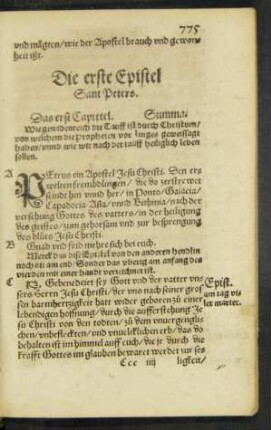 775
vnd mügten/wie der Apostel brauch vnd gewon-
heit ist.
Die erste Epistel
Sant Peters.
Das erst Capittel. Summa.
Wie genadenreich die Tauff ist durch Christum/
von welichem die Propheten vor langes geweissagt
haben/vnnd wie wir nach der tauff heiliglich leben
sollen.
A PEtrus ein Apostel Jesu Christi. Den er
welten frembdlingen/ die do
sindt hin vnnd her/in Ponto/Galacia/
Capadocia Asia/vnd Bithinia/nach der
versehung Gottes des vatters/in der heiligung
des geistes/zum gehorsam vnd zur besprengung
des blůts Jesu Christi.
B Gnad vnd frid mehre sich bey euch.
Epistel von den anderen
am anfang des
mit einer handt verzaichnet ist.
C Gebenedeiet sey Gott vnd der vatter vn-
sers Herrn Jesu Christi/ der vns nach seiner gros
sen barmhertzigkeit hatt wider geboren zů einer
lebendigen hoffnung/durch die aufferstehung Je
su Christi von den todten/ zů dem vnuergenglis
chen/vnbefleckten/vnd vnuelcklichen erb/das do
behalten ist im himmel auff euch/die jr durch die
krafft Gottes im glauben bewaret werdet zur se-
Epist.
am tag vi-
ler märter.
Ccc iiij ligkeit/